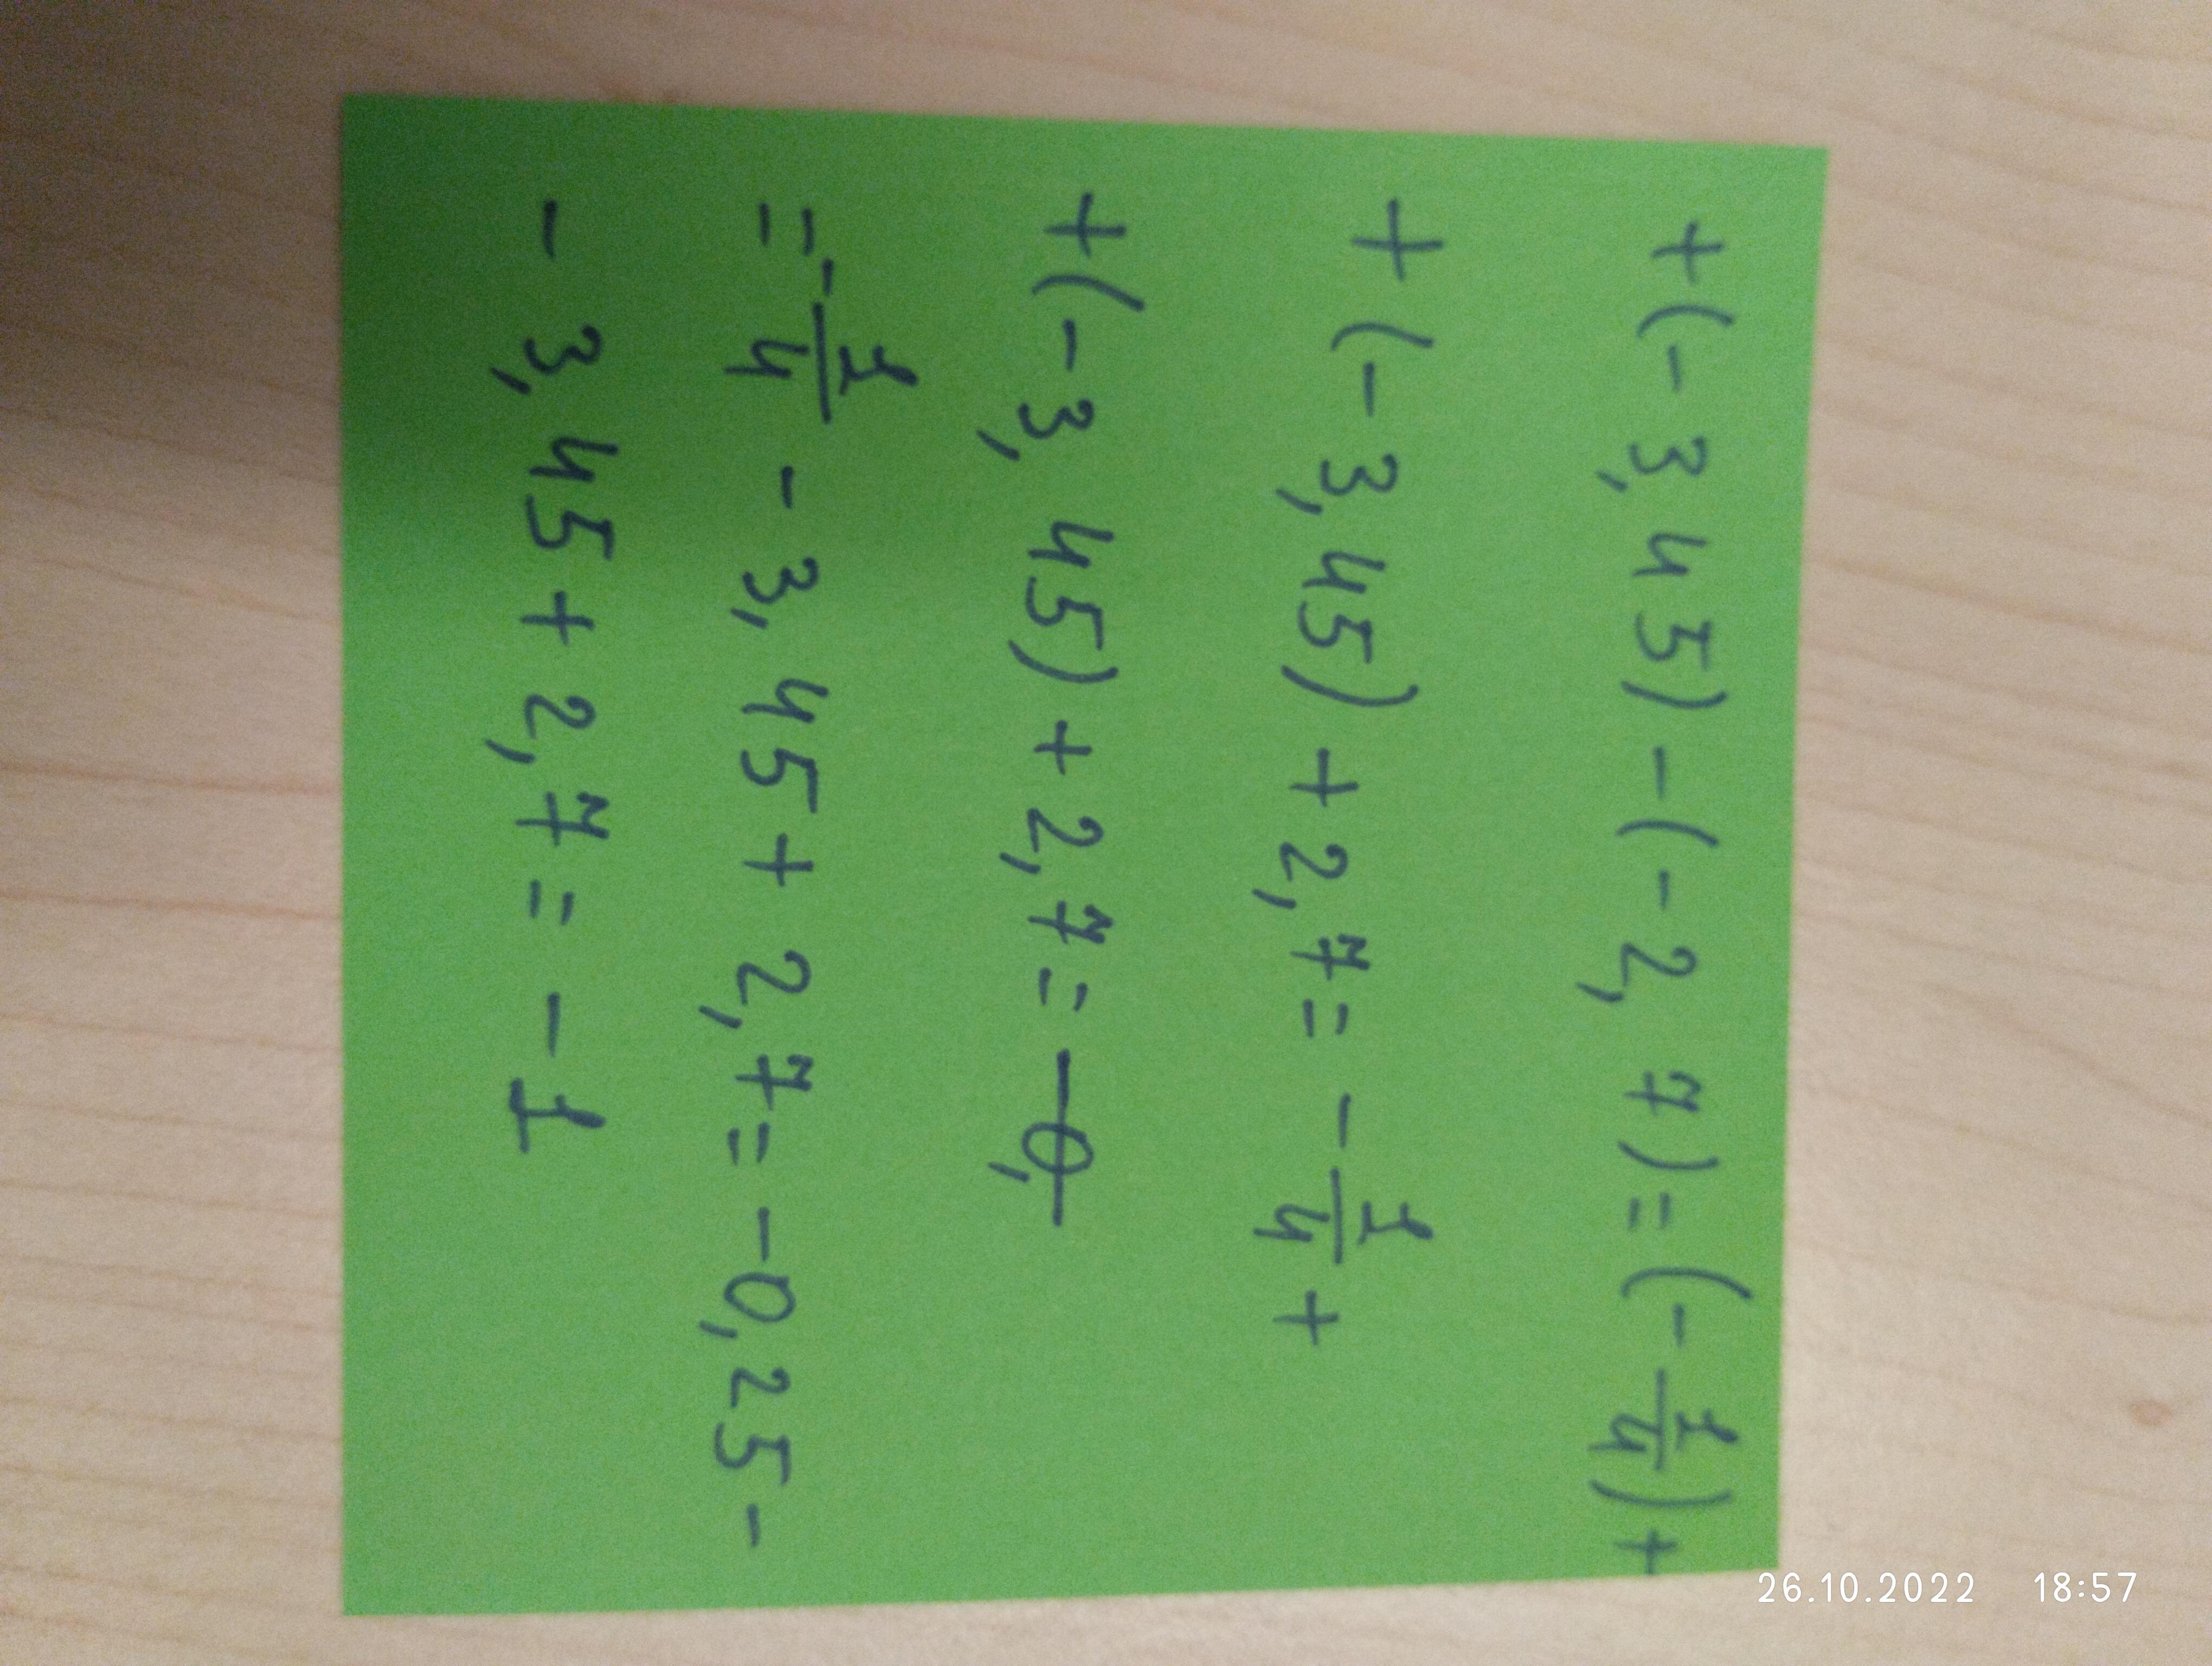 +(-3,45)-(-2,7)=(-1/4)+
+(-3,45)+2,7=-1/4+
+(-3,45)+2,7=-0,
=-1/4-3,45+2,7=-0,25-
-3,45+2,7=-1
26.10.2022 18:57